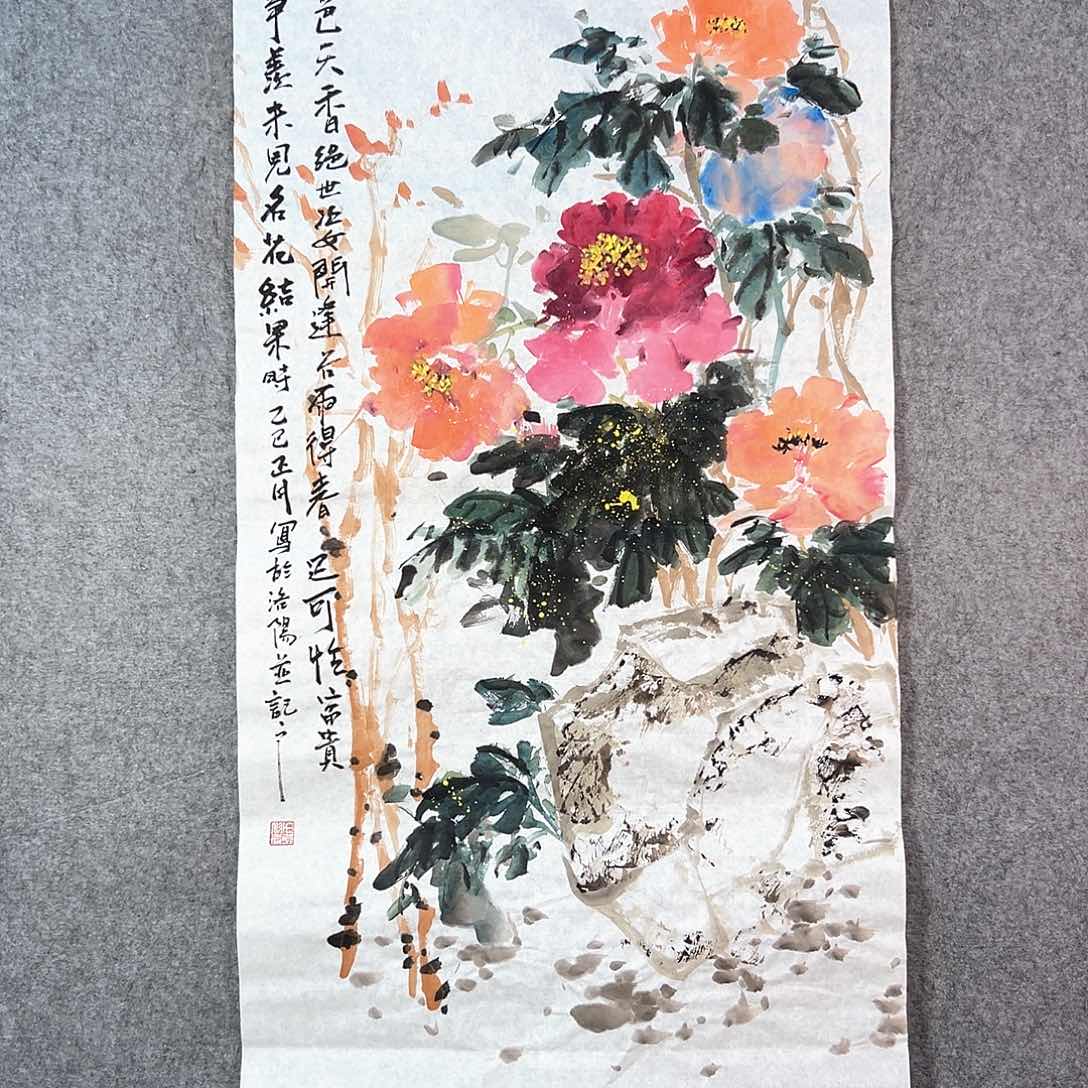 色天香絕世姿開逢谷雨得春迟可怜富貴
争羨未見名花結果時乙巳正月寫於洛陽並記